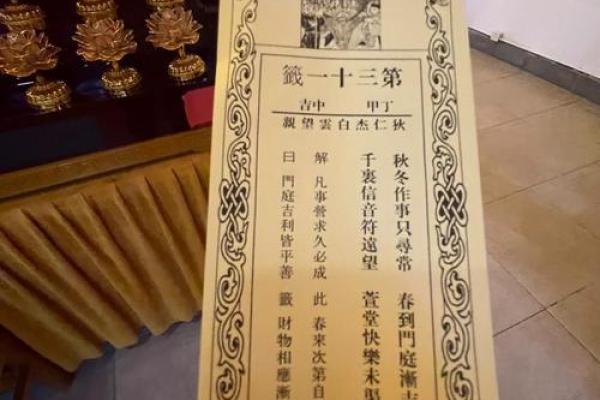 第三十一籤
丁甲 中吉
狄仁杰白雲望親
秋冬作事只尋常 春到門庭漸
千裏信音符遠望 萱堂快樂未
解 凡事營求久必成 此 春來次第自
曰 門庭吉利皆平善 籤 財物相應漸